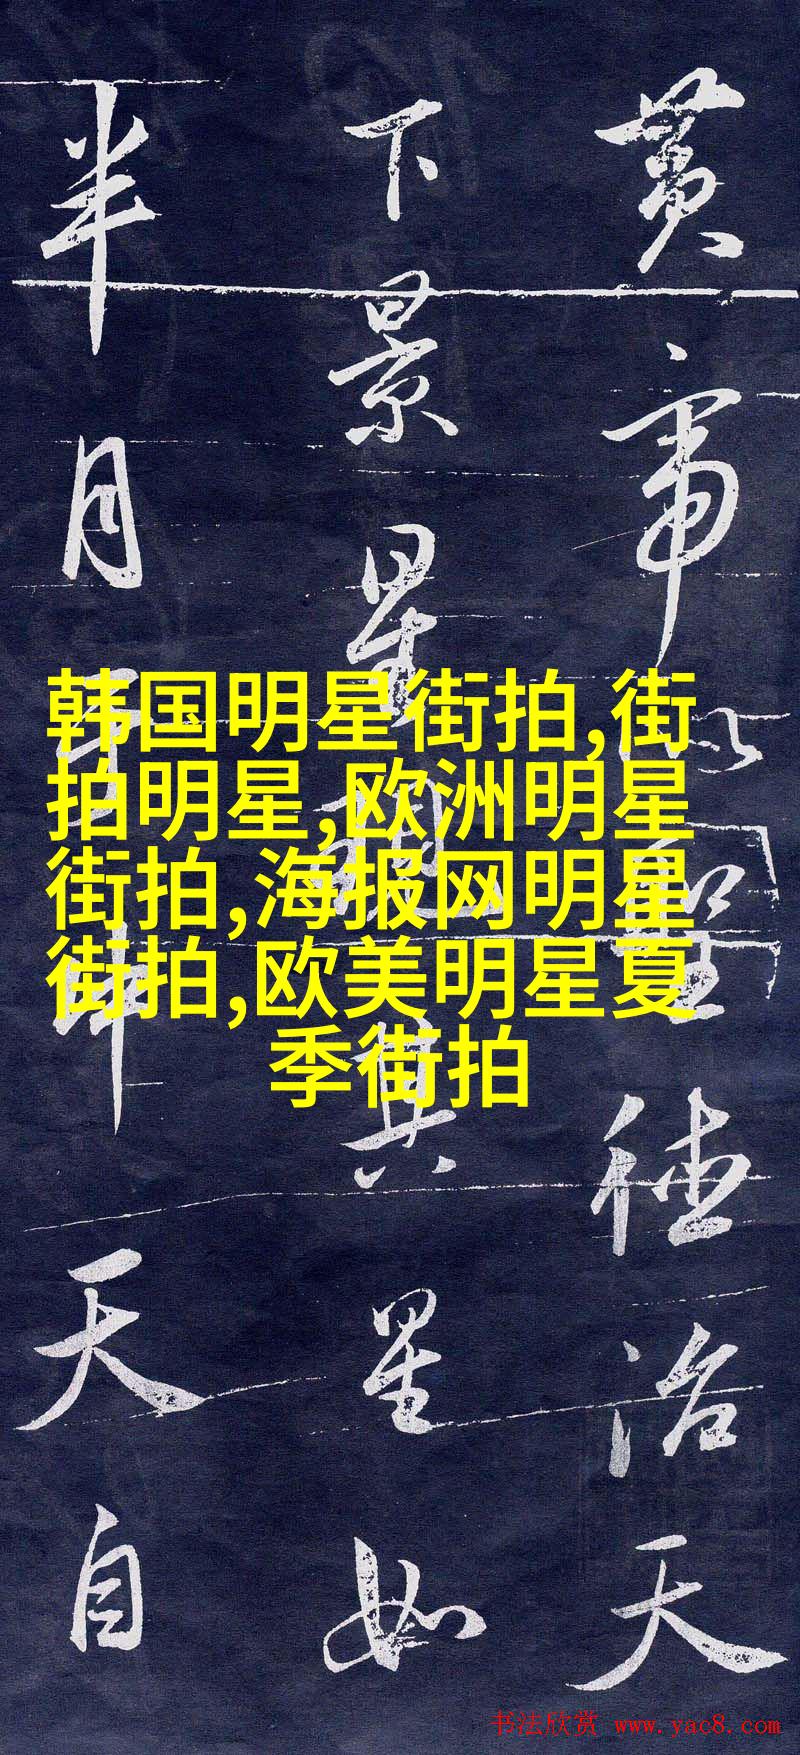 黄帝以聖德治天
下景星現其星如
半月中天自
韩国明星街拍,街
拍明星,欧洲明星
街拍,海报网明星
街拍,欧美明星夏
季街拍
书法欣赏 www.yac8.com